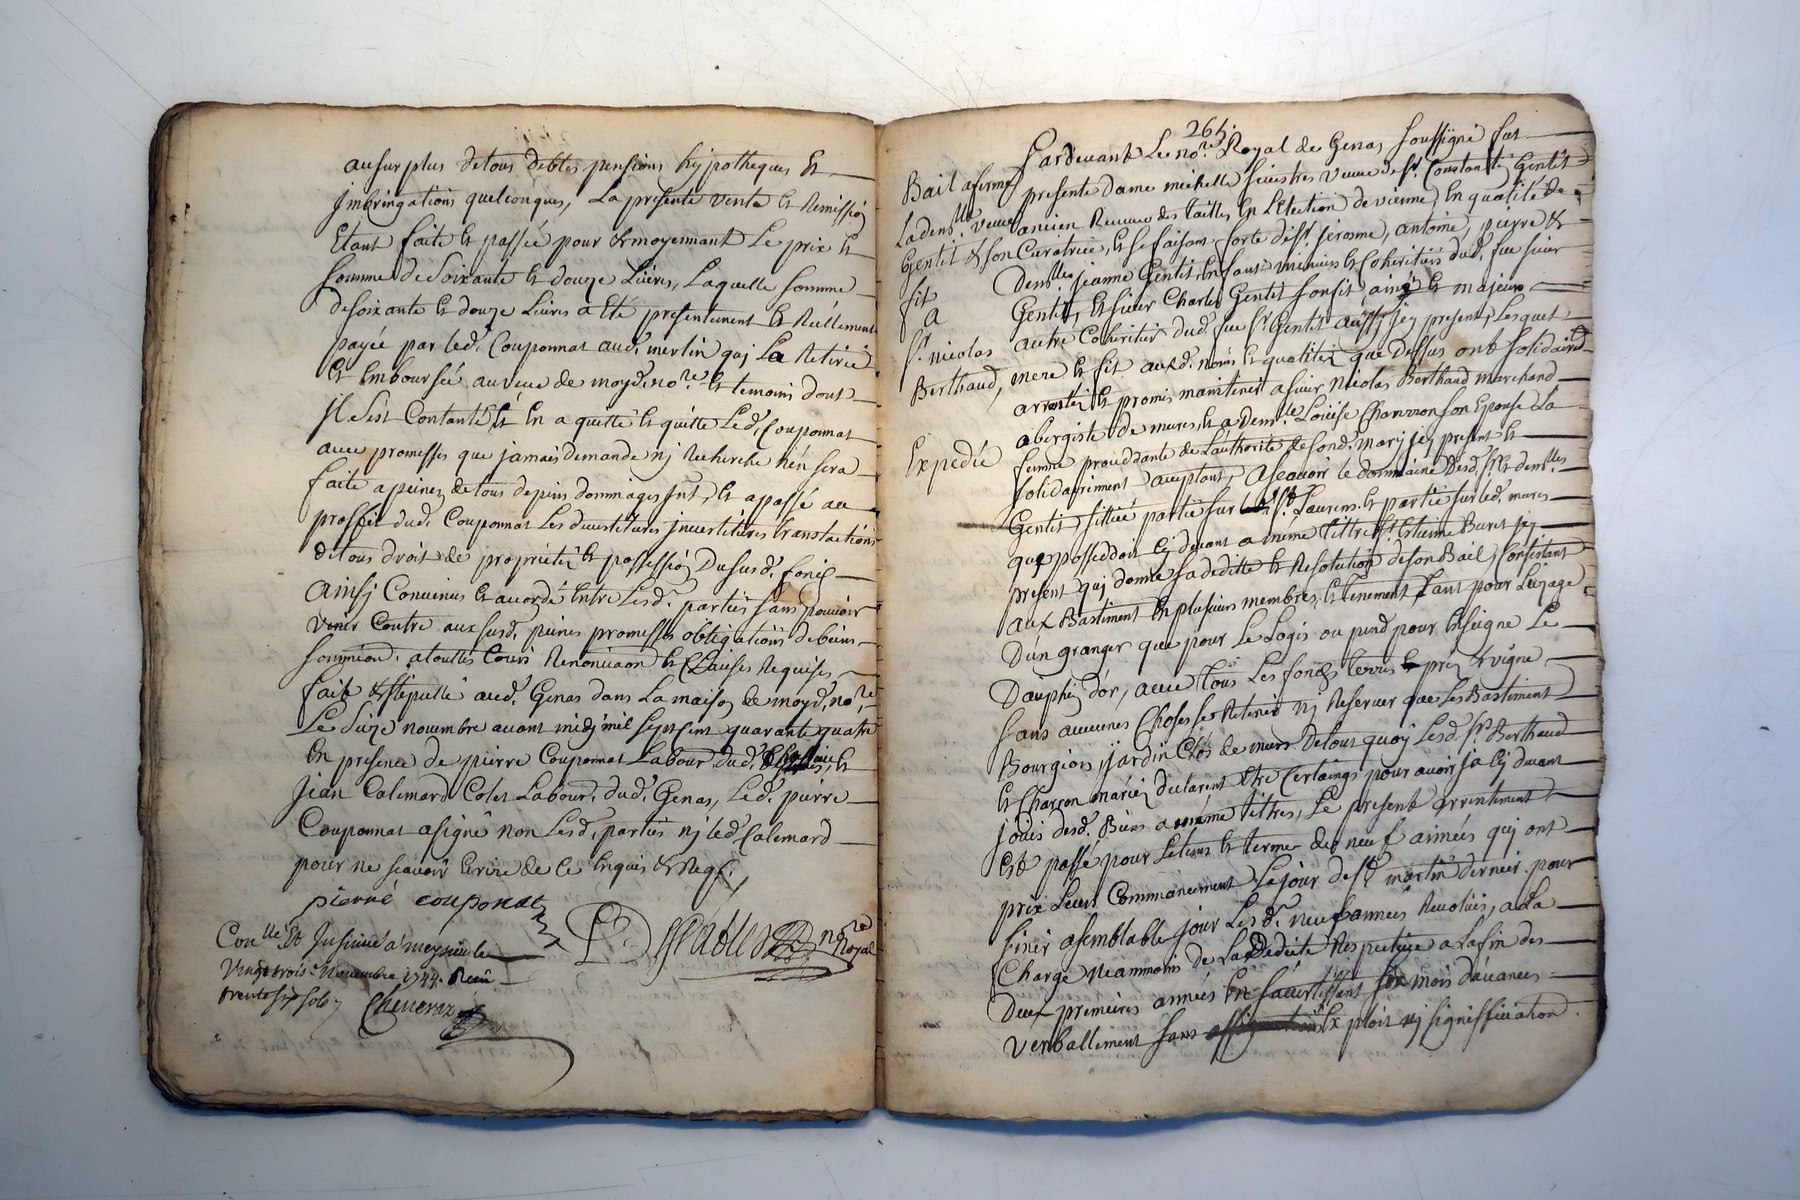 au surplus de tous debtes pensions hypotheques Et
Imbringations quelconques, La presente vente Et Remission
Etant faite Et passée pour & moyennant Le prix Et
somme de soixante Et douze Livres, Laquelle somme
de soixante Et douze Livres a Eté presentement Et Réellement
payée par led. Couponnat aud. merlin qui La Retirée
Et Emboursée au veue de moyd. no.re Et temoins dont
jl s'est Contanté, Et En a quitté Et quitte Led. Couponnat
avec promesses que jamais demande nj Recherche n'en sera
faite a peines de tous depens dommages Int, Et a passé au
proffit dud. Couponnat Les devestitures jnvestitures translations
de tous droit de proprieté Et possession Du susd. fonds
Ainsj Convenus Et acordé Entre Lesd. parties sans pouvoir
venir Contre aux susd. peines promesses obligations de biens
soumission. a touttes Cours Renonciaon Et Clauses Requises
fait & stipullé aud. Genas dans La maison de moyd. no.re
Le seize novembre avant midj mil sept cent quarante quatre
En presence de pierre Couponnat Labour. dud. Et
Jean Calemard Colet Labour. dud. Genas, Led. pierre
Couponnat a signé non Lesd. parties nj led. Calemard
pour ne scavoir Ecrire de Ce Enquis & Reqs.
pierre couponat
no.re Royal
Con.lle Et Insinué a meyzieu le
vingt trois.e Novembre 1744. Receu
trente six sols
Chenavaz
264.
Pardevant Le no.re Royal de Genas soussigné fut
Bail a ferme
presente dame michelle veuve de sr. Constantin Gentit
La dem.lle veuve
ancien Receveur des tailles En L'Election de vienne, En qualité de
Gentit & son
Curatrice, Et se faisant forte des sr. jerosme, antoine, pierre &
fit
dem.lle jeanne Gentit Enfans mineurs Et Coheritiers dud. feu sieur
a
Gentit, Et sieur Charles Gentit son fit ainé Et majeur
sr. nicolas
autre Coheritier dud. feu sr. Gentit aussj jcy present, Lesquels
Berthaud,
mere Et fit auxd. noms Et qualités que Dessus ont solidairem.
arrentés Et promis maintenir a sieur Nicolas Berthaud marchand
abergiste de mures, Et a Dem.lle Loüise Charrron son Epouse La
Expedié
femme procedante de L'authorité de sond. mary jcy present Et
solidairement acceptant, Asçavoir le dommaine Desd. sr. Et dem.lles
Gentit sittué partie sur St. Laurens, Et partie sur led. mures
que possedoit cy devant a même tittre sr. Etienne Buret jcy
present quj donne sa deditte Et Resolution de son Bail, Consistant
aux Bastiment En plusieurs membres, Et tenement tant pour L'uzage
D'un granger que pour Le Logis ou pend pour Enseigne Le
Dauphin d'or, avec tous Les fonds terres Et prés & vigne
sans aucunes Choses se Retenir nj Reserver que Les Bastiment
Bourgeois, jardin Clos de murs De tout quoy Lesd. sr. Berthaud
Et Charron mariés declarent Etre Certains pour avoir ja cy devant
jouis desd. Biens a même tittres, Le present arrentement
Est passé pour Le tems Et terme de neuf années quj ont
prix Leur Commancement Le jour de St. martin dernier pour
finir a semblable jour Lesd. neuf années Revolües, a La
Charge neanmoins de La Dedicte Respective a La fin des
Deux premieres années En s'avertissant six mois d'avances
verballement sans Exploit nj signiffication.